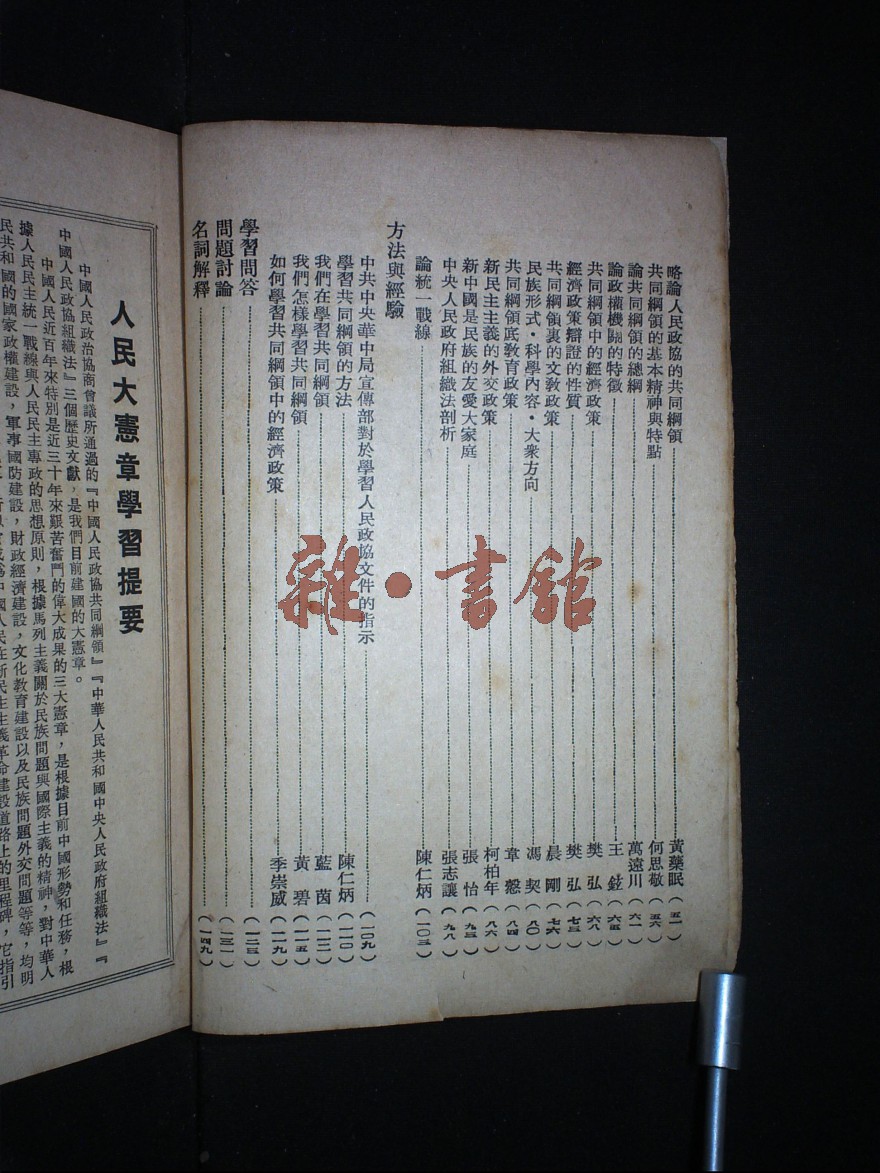 略論人民政協的共同綱領……黃藥眠(五一)
共同綱領的基本精神與特點……何思敬(五六)
論共同綱領的總綱……萬遠川(六一)
論政權機關的特徵……王鉉(六五)
共同綱領中的經濟政策……樊弘(六八)
經濟政策辯證的性質……樊弘(七三)
共同綱領裏的文敎政策……晨剛(七六)
民族形式・科學內容・大衆方向……馮契(八〇)
共同綱領底敎育政策……韋慤(八四)
新民主主義的外交政策……柯柏年(八六)
新中國是民族的友愛大家庭……張怡(九三)
中央人民政府組織法剖析……張志讓(九八)
論統一戰線……陳仁炳(一〇三)
方法與經驗
中共中央華中局宣傳部對於學習人民政協文件的指示……(一〇九)
學習共同綱領的方法……陳仁炳(一一〇)
我們在學習共同綱領……藍茵(一一二)
我們怎樣學習共同綱領……黃碧(一一五)
如何學習共同綱領中的經濟政策……季崇威(一一九)
學習問答……(一二三)
問題討論……(一三一)
名詞解釋……(一四九)
雜・書館
人民大憲章學習提要
中國人民政治協商會議所通過的『中國人民政協共同綱領』『中華人民共和國中央人民政府組織法』『
中國人民政協組織法』三個歷史文獻，是我們目前建國的大憲章。
中國人民近百年來特別是近三十年來艱苦奮鬥的偉大成果的三大憲章，是根據目前中國形勢和任務，根
據人民民主統一戰線與人民民主專政的思想原則，根據馬列主義關於民族問題與國際主義的精神，對中華人
民共和國的國家政權建設，軍事國防建設，財政經濟建設，文化敎育建設以及民族問題外交問題等等，均明
中國人民在新民主主義革命建設道路上的里程碑，它指引